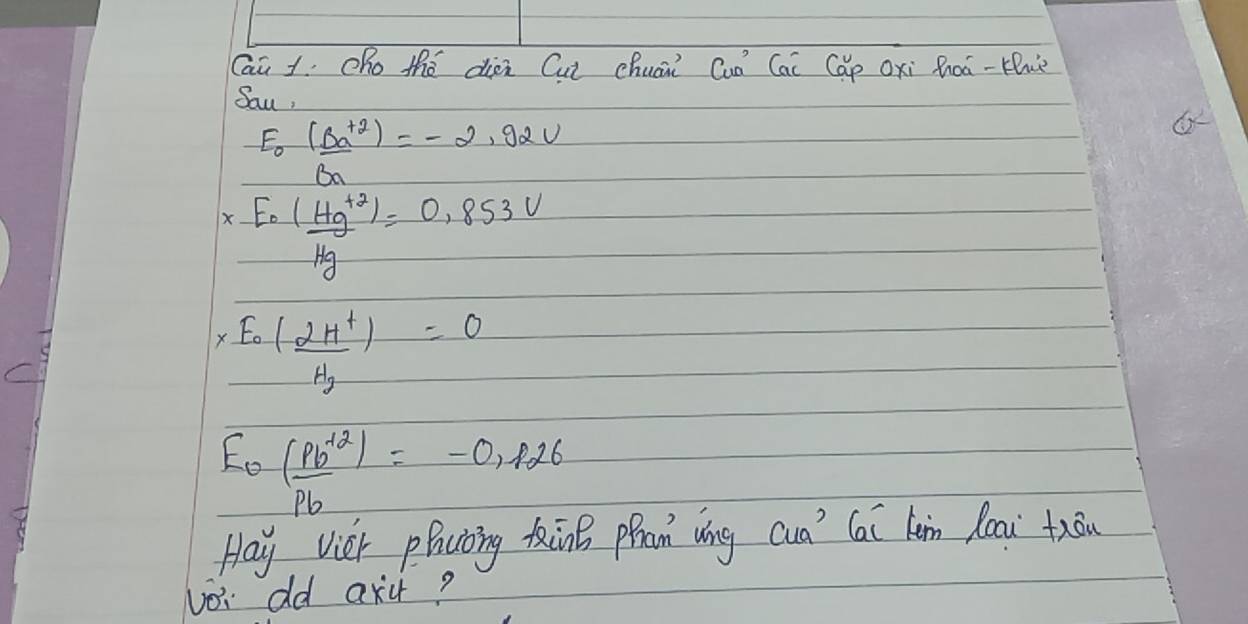 Câu 1: Cho thế điện Cực chuẩn Của Các Cặp Oxi hoá - khử
Sau,
E₀ (Ba⁺²) = - 2,92V
Ba
x E₀ (Hg⁺²) = 0,853V
Hg
x E₀ (2H⁺) = 0
Hg
E₀ (Pb⁺²) = -0,126
Pb
Hãy viết phương trình phản ứng của các kim loại trên
với dd axit ?